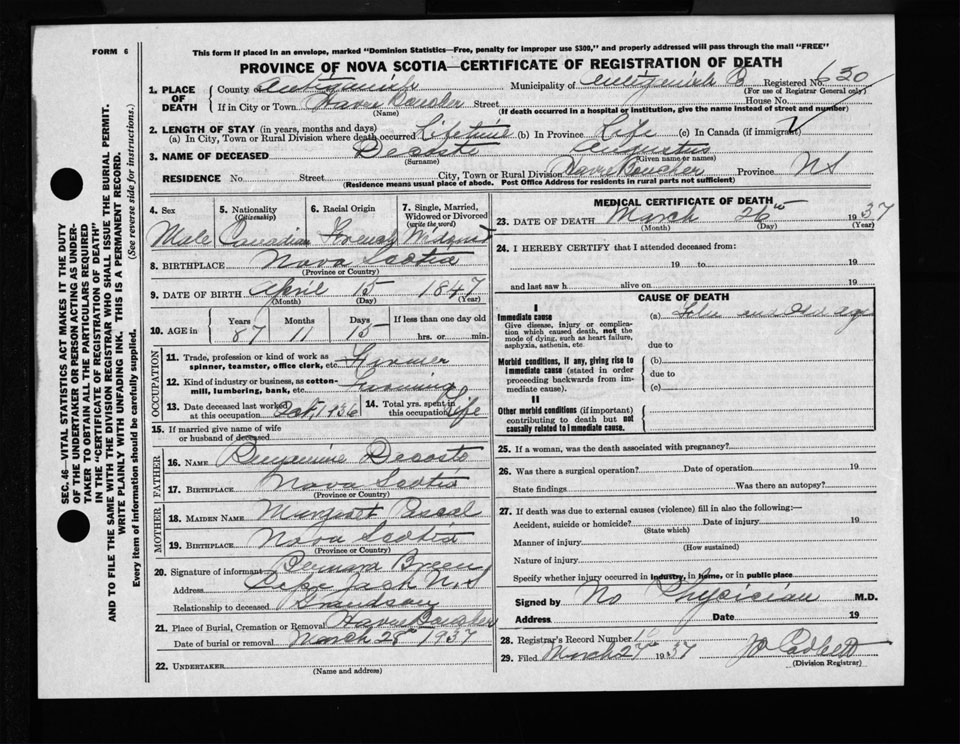 FORM 6
This form if placed in an envelope, marked "Dominion Statistics—Free, penalty for improper use $300," and properly addressed will pass through the mail "FREE"
PROVINCE OF NOVA SCOTIA—CERTIFICATE OF REGISTRATION OF DEATH
1. PLACE OF DEATH
County of Antigonish Municipality of Antigonish Registered No. 620
(For use of Registrar General only)
If in City or Town Havre Boucher Street House No.
(Name) (If death occurred in a hospital or institution, give the name instead of street and number)
2. LENGTH OF STAY (in years, months and days)
(a) In City, Town or Rural Division where death occurred Lifetime (b) In Province Life (c) In Canada (if immigrant)
3. NAME OF DECEASED Decoste Augustus
(Surname) (Given name or names)
RESIDENCE No. Street City, Town or Rural Division Havre Boucher Province NS
(Residence means usual place of abode. Post Office Address for residents in rural parts not sufficient)
4. Sex 5. Nationality (Citizenship) 6. Racial Origin 7. Single, Married, Widowed or Divorced (write the word)
Male Canadian French
8. BIRTHPLACE Nova Scotia
(Province or Country)
9. DATE OF BIRTH April 15 1847
(Month) (Day) (Year)
10. AGE in Years Months Days If less than one day old
87 11 15 hrs. or min.
OCCUPATION
11. Trade, profession or kind of work as spinner, teamster, office clerk, etc. Farmer
12. Kind of industry or business, as cotton-mill, lumbering, bank, etc. Farming
13. Date deceased last worked at this occupation Oct. 1936 14. Total yrs. spent in this occupation Life
15. If married give name of wife or husband of deceased
FATHER
16. NAME Decoste
17. BIRTHPLACE Nova Scotia
(Province or Country)
MOTHER
18. MAIDEN NAME Margaret
19. BIRTHPLACE Nova Scotia
(Province or Country)
20. Signature of informant Bernard Breen
Address Cape Jack N.S
Relationship to deceased Grandson
21. Place of Burial, Cremation or Removal Havre Boucher
Date of burial or removal March 28th 1937
22. UNDERTAKER
(Name and address)
MEDICAL CERTIFICATE OF DEATH
23. DATE OF DEATH March 26th 1937
(Month) (Day) (Year)
24. I HEREBY CERTIFY that I attended deceased from:
19 to 19
and last saw h alive on 19
CAUSE OF DEATH
I
Immediate cause (a)
Give disease, injury or complication which caused death, not the mode of dying, such as heart failure, asphyxia, asthenia, etc.
due to
Morbid conditions, if any, giving rise to immediate cause (stated in order proceeding backwards from immediate cause).
(b)
due to
(c)
II
Other morbid conditions (if important) contributing to death but not causally related to Immediate cause.
25. If a woman, was the death associated with pregnancy?
26. Was there a surgical operation? Date of operation 19
State findings Was there an autopsy?
27. If death was due to external causes (violence) fill in also the following:—
Accident, suicide or homicide? Date of injury 19
(State which)
Manner of injury
(How sustained)
Nature of injury
Specify whether injury occurred in Industry, in home, or in public place
Signed by No Physician M.D.
Address Date 19
28. Registrar's Record Number
29. Filed March 27 1937
(Division Registrar)
SEC. 46—VITAL STATISTICS ACT MAKES IT THE DUTY
OF THE UNDERTAKER OR PERSON ACTING AS UNDER-
TAKER TO OBTAIN ALL THE PARTICULARS REQUIRED
IN THE "CERTIFICATE OF REGISTRATION OF DEATH"
AND TO FILE THE SAME WITH THE DIVISION REGISTRAR WHO SHALL ISSUE THE BURIAL PERMIT.
WRITE PLAINLY WITH UNFADING INK. THIS IS A PERMANENT RECORD.
Every item of information should be carefully supplied. (See reverse side for instructions.)